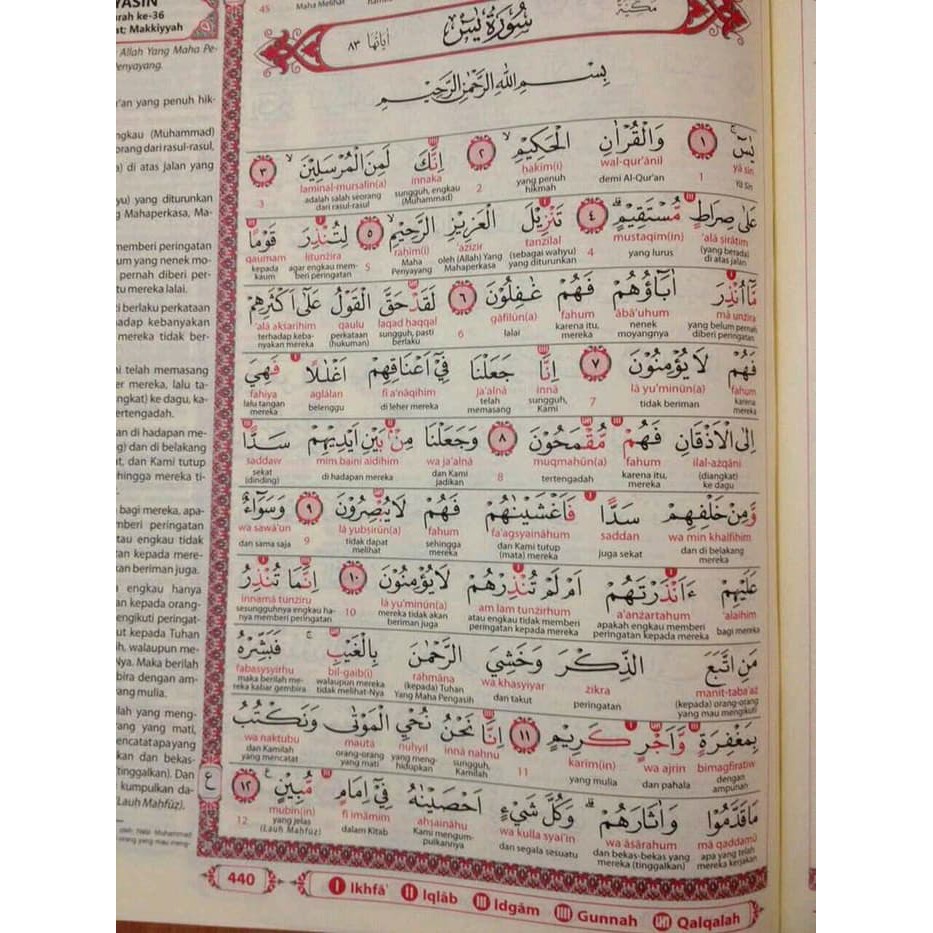 YASIN
rah ke-36
at; Makkiyyah
Allah Yang Maha Pe-
Penyayang.
'an yang penuh hik-
ngkau (Muhammad)
orang dari rasul-rasul,
) di atas jalan yang
yu) yang diturunkan
g Mahaperkasa, Ma-
memberi peringatan
um yang nenek mo-
pernah diberi per-
tu mereka lalai.
i berlaku perkataan
adap kebanyakan
mereka tidak ber-
i telah memasang
er mereka, lalu ta-
ngkat) ke dagu, ka-
ertengadah.
an di hadapan me-
g) dan di belakang
t, dan Kami tutup
hingga mereka ti-
bagi mereka, apa-
mberi peringatan
tau engkau tidak
an kepada mere-
an beriman juga.
engkau hanya
an kepada orang-
engikuti peringat-
ut kepada Tuhan
h, walaupun me-
Nya. Maka berilah
bira dengan am-
ang mulia.
lah yang meng-
rang yang mati,
encatat apa yang
kan dan bekas-
tinggalkan). Dan
kumpulkan da-
(Lauh Mahfūz).
45 Maha Melihat
مكية
سُورَةُ يٰسٓ
اٰيَاتُهَا ٨٣
بِسْمِ اللّٰهِ الرَّحْمٰنِ الرَّحِيْمِ
يٰسۤ ۚ ١ وَالْقُرْاٰنِ الْحَكِيْمِۙ ٢ اِنَّكَ لَمِنَ الْمُرْسَلِيْنَۙ ٣
yā sīn 1 wal-qur'ānil ḥakīm(i) 2 innaka laminal-mursalīn(a) 3
Yā Sīn demi Al-Qur'an yang penuh hikmah sungguh, engkau (Muhammad) adalah salah seorang dari rasul-rasul
عَلٰى صِرَاطٍ مُّسْتَقِيْمٍۗ ٤ تَنْزِيْلَ الْعَزِيْزِ الرَّحِيْمِۙ ٥ لِتُنْذِرَ قَوْمًا
'alā ṣirāṭim mustaqīm(in) 4 tanzīlal 'azīzir raḥīm(i) 5 litunżira qaumam
(yang berada) di atas jalan yang lurus (sebagai wahyu) yang diturunkan oleh (Allah) Yang Mahaperkasa Maha Penyayang agar engkau memberi peringatan kepada kaum
مَّآ اُنْذِرَ اٰبَاۤؤُهُمْ فَهُمْ غٰفِلُوْنَ ٦ لَقَدْ حَقَّ الْقَوْلُ عَلٰٓى اَكْثَرِهِمْ
mā unżira ābā'uhum fahum gāfilūn(a) 6 laqad ḥaqqal qaulu 'alā akṡarihim
yang belum pernah diberi peringatan nenek moyangnya karena itu, mereka lalai sungguh, pasti berlaku perkataan (hukuman) terhadap kebanyakan mereka
فَهُمْ لَا يُؤْمِنُوْنَ ٧ اِنَّا جَعَلْنَا فِيْٓ اَعْنَاقِهِمْ اَغْلٰلًا فَهِيَ
fahum lā yu'minūn(a) 7 innā ja'alnā fī a'nāqihim aglālan fahiya
karena mereka tidak beriman sungguh, Kami telah memasang di leher mereka belenggu lalu tangan mereka
اِلَى الْاَذْقَانِ فَهُمْ مُّقْمَحُوْنَ ٨ وَجَعَلْنَا مِنْۢ بَيْنِ اَيْدِيْهِمْ سَدًّا
ilal-ażqāni fahum muqmaḥūn(a) 8 wa ja'alnā mim baini aidīhim saddaw
(diangkat) ke dagu karena itu, mereka tertengadah dan Kami jadikan di hadapan mereka sekat (dinding)
وَّمِنْ خَلْفِهِمْ سَدًّا فَاَغْشَيْنٰهُمْ فَهُمْ لَا يُبْصِرُوْنَ ٩ وَسَوَاۤءٌ
wa min khalfihim saddan fa'agsyaināhum fahum lā yubṣirūn(a) 9 wa sawā'un
dan di belakang mereka juga sekat dan Kami tutup (mata) mereka sehingga mereka tidak dapat melihat dan sama saja
عَلَيْهِمْ ءَاَنْذَرْتَهُمْ اَمْ لَمْ تُنْذِرْهُمْ لَا يُؤْمِنُوْنَ ١٠ اِنَّمَا تُنْذِرُ
'alaihim a'anżartahum am lam tunżirhum lā yu'minūn(a) 10 innamā tunżiru
bagi mereka apakah engkau memberi peringatan kepada mereka atau engkau tidak memberi peringatan kepada mereka mereka tidak akan beriman juga sesungguhnya engkau hanya memberi peringatan
مَنِ اتَّبَعَ الذِّكْرَ وَخَشِيَ الرَّحْمٰنَ بِالْغَيْبِۚ فَبَشِّرْهُ
manit-taba'aż żikra wa khasyiyar raḥmāna bil-gaib(i) fabasysyirhu
(kepada) orang-orang yang mau mengikuti peringatan dan takut (kepada) Tuhan Yang Maha Pengasih walaupun mereka tidak melihat-Nya maka berilah mereka kabar gembira
بِمَغْفِرَةٍ وَّاَجْرٍ كَرِيْمٍ ١١ اِنَّا نَحْنُ نُحْيِ الْمَوْتٰى وَنَكْتُبُ
bimagfiratiw wa ajrin karīm(in) 11 innā naḥnu nuḥyil mautā wa naktubu
dengan ampunan dan pahala yang mulia sungguh, Kamilah yang menghidupkan orang-orang yang mati dan Kamilah yang mencatat
مَا قَدَّمُوْا وَاٰثَارَهُمْۗ وَكُلَّ شَيْءٍ اَحْصَيْنٰهُ فِيْٓ اِمَامٍ مُّبِيْنٍ ١٢ ع
mā qaddamū wa āṡārahum wa kulla syai'in aḥṣaināhu fī imāmim mubīn(in) 12
apa yang telah mereka kerjakan dan bekas-bekas yang mereka (tinggalkan) dan segala sesuatu Kami mengumpulkannya dalam Kitab yang jelas (Lauh Mahfūz)
440 I Ikhfā' II Iqlāb III Idgām IIII Gunnah Qalqalah